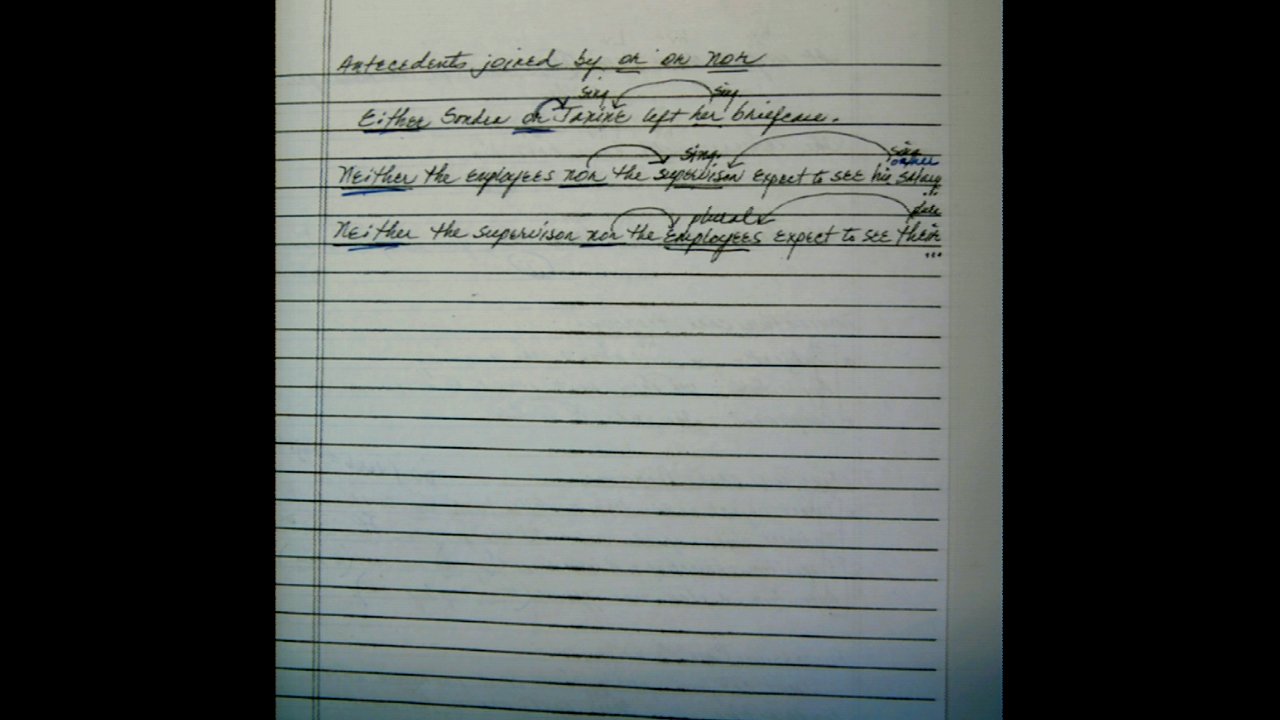 Antecedents joined by or or nor
sing. sing.
Either Sondra or Janine left her briefcase.
sing. sing
or her
Neither the employees nor the supervisor expect to see his salary
...
plural
Neither the supervisor nor the employees expect to see their
...